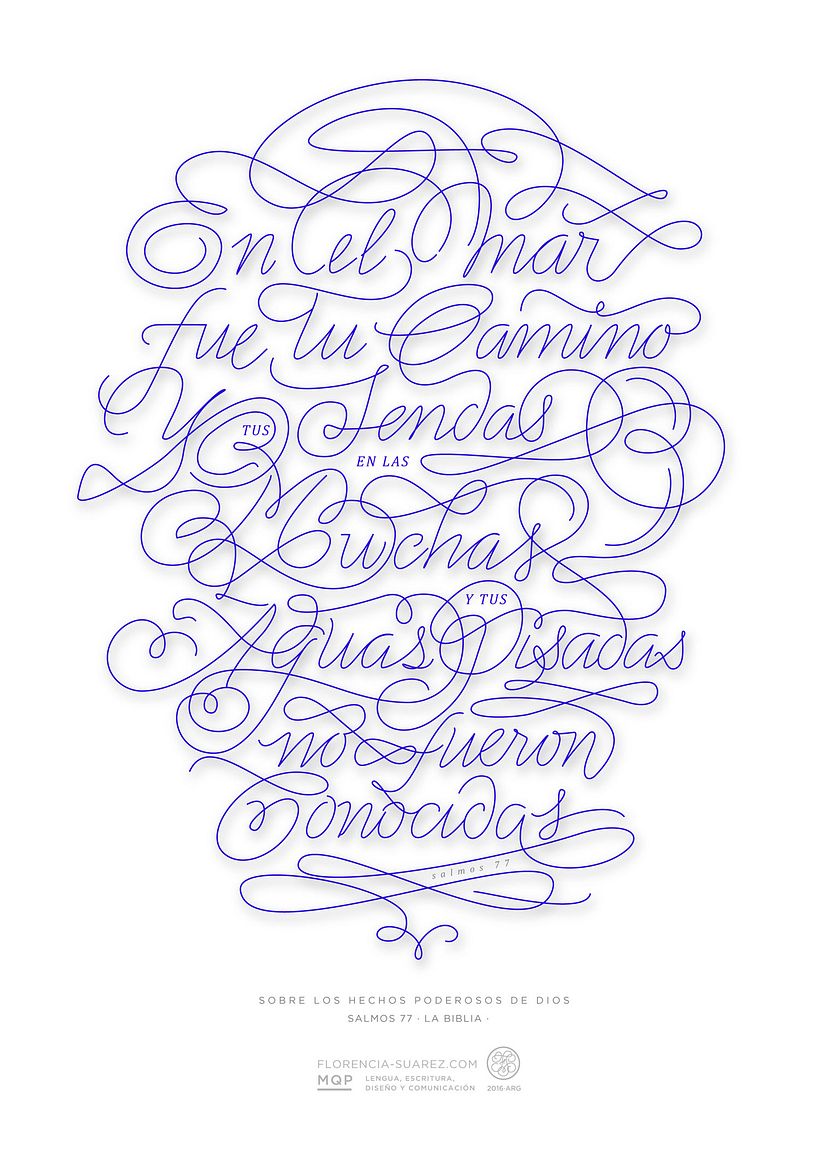 En el mar
fue tu Camino
Y TUS Sendas
EN LAS
Muchas
Aguas Y TUS Pisadas
no fueron
Conocidas
salmos 77
SOBRE LOS HECHOS PODEROSOS DE DIOS
SALMOS 77 · LA BIBLIA ·
FLORENCIA-SUAREZ.COM
MQP LENGUA, ESCRITURA,
DISEÑO Y COMUNICACIÓN 2016·ARG